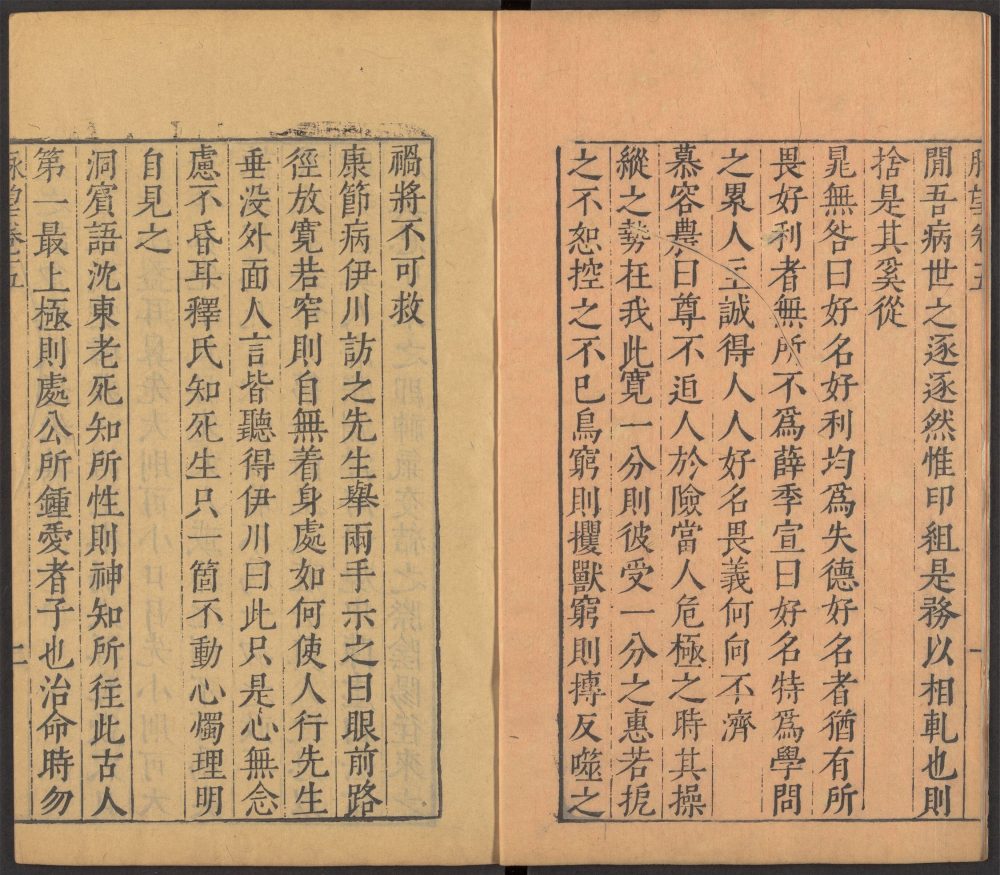 脉望卷五
一
閒吾病世之逐逐然惟印組是務以相軋也則
捨是其奚從
晁無咎曰好名好利均爲失德好名者猶有所
畏好利者無所不爲薛季宣曰好名特爲學問
之累人主誠得人人好名畏義何向不濟
慕容農曰尊不迫人於險當人危極之時其操
縱之勢在我此寛一分則彼受一分之惠若扼
之不恕控之不已鳥窮則攫獸窮則摶反噬之
禍將不可救
康節病伊川訪之先生舉兩手示之曰眼前路
徑放寛若窄則自無着身處如何使人行先生
垂没外面人言皆聽得伊川曰此只是心無念
慮不昏耳釋氏知死生只一箇不動心燭理明
自見之
洞賓語沈東老死知所性則神知所往此古人
第一最上極則處公所鍾愛者子也治命時勿
脉望卷之五
二